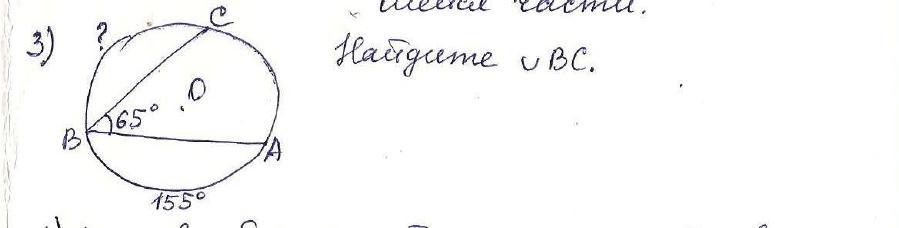 части.
3)
Найдите ∪ BC.
C
?
O
65°
B
A
155°